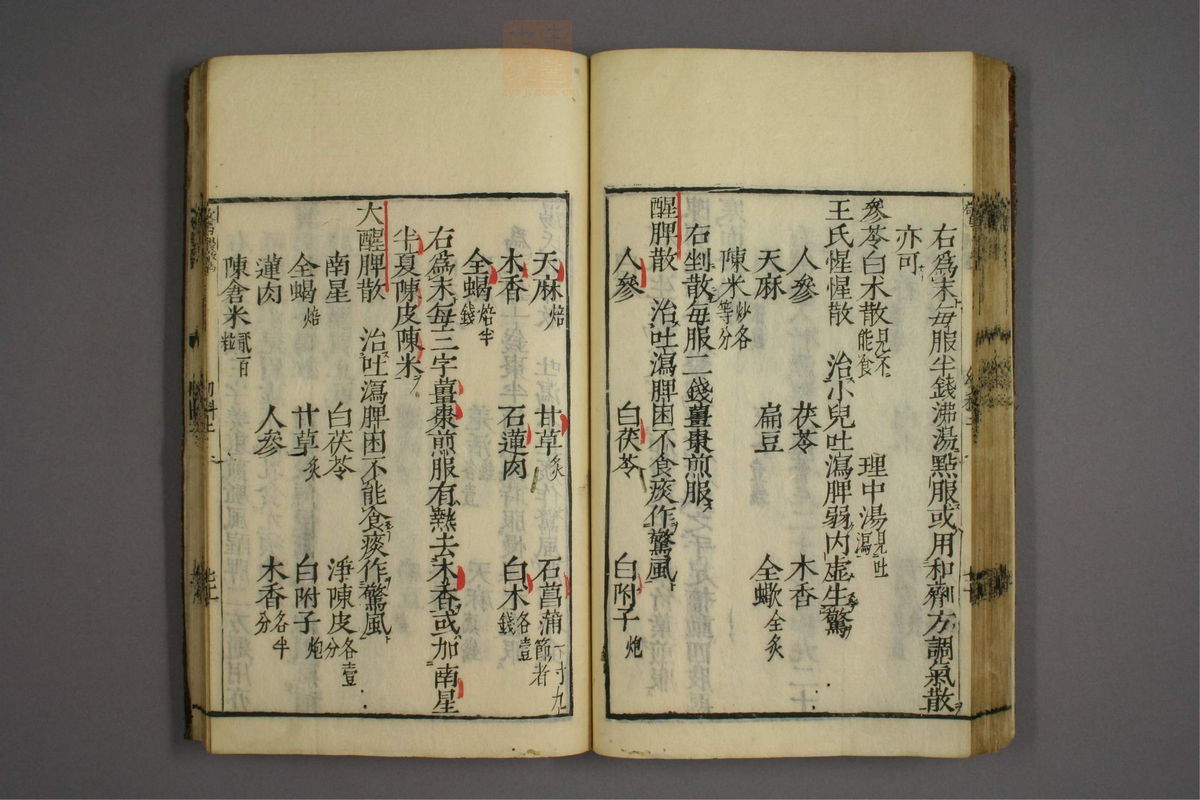 右爲末每服半錢沸湯點服或用和劑方調氣散
亦可
參苓白朮散見不能食 理中湯見吐瀉
王氏惺惺散 治小兒吐瀉脾弱内虚生驚
人參 茯苓 木香
天麻 扁豆 全蠍全炙
陳米炒各等分
右剉散每服二錢薑棗煎服
醒脾散 治吐瀉脾困不食痰作驚風
人參 白茯苓 白附子炮
天麻焙 甘草炙 石菖蒲一寸九節者
木香 石蓮肉 白朮各壹錢
全蝎焙半錢
右爲末每三字薑棗煎服有熱去木香或加南星
半夏陳皮陳米
大醒脾散 治吐瀉脾困不能食痰作驚風
南星 白茯苓 淨陳皮各壹分
全蝎焙 甘草炙 白附子炮
蓮肉 人參 木香各半分
陳倉米貳百粒